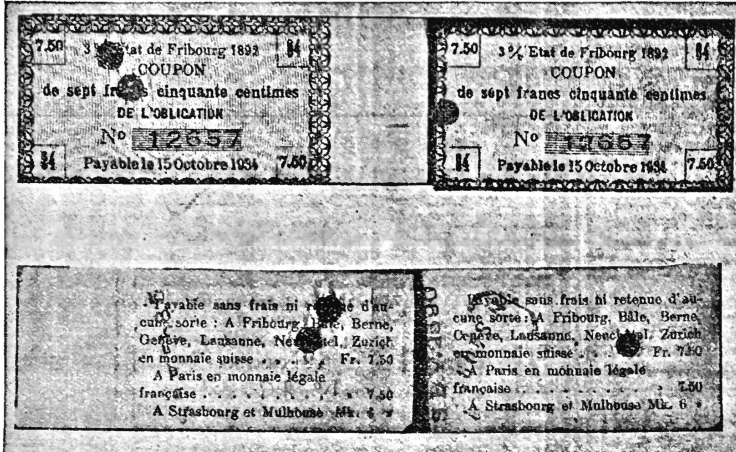 7.50 3% Etat de Fribourg 1892 84
COUPON
de sept francs cinquante centimes
DE L'OBLIGATION
No 12657
84 Payable le 15 Octobre 1934 7.50
7.50 3% Etat de Fribourg 1892 84
COUPON
de sept francs cinquante centimes
DE L'OBLIGATION
No
84 Payable le 15 Octobre 1934 7.50
Payable sans frais ni retenue d'au-
cune sorte : A Fribourg, Bâle, Berne,
Genève, Lausanne, Neuchâtel, Zurich
en monnaie suisse . . . . . Fr. 7.50
A Paris en monnaie légale
française . . . . . . . . » 7.50
A Strasbourg et Mulhouse Mk. 6 »
Payable sans frais ni retenue d'au-
cune sorte : A Fribourg, Bâle, Berne,
Genève, Lausanne, Neuchâtel, Zurich
en monnaie suisse . . . Fr. 7.50
A Paris en monnaie légale
française . . . . . . . . » 7.50
A Strasbourg et Mulhouse Mk. 6 »